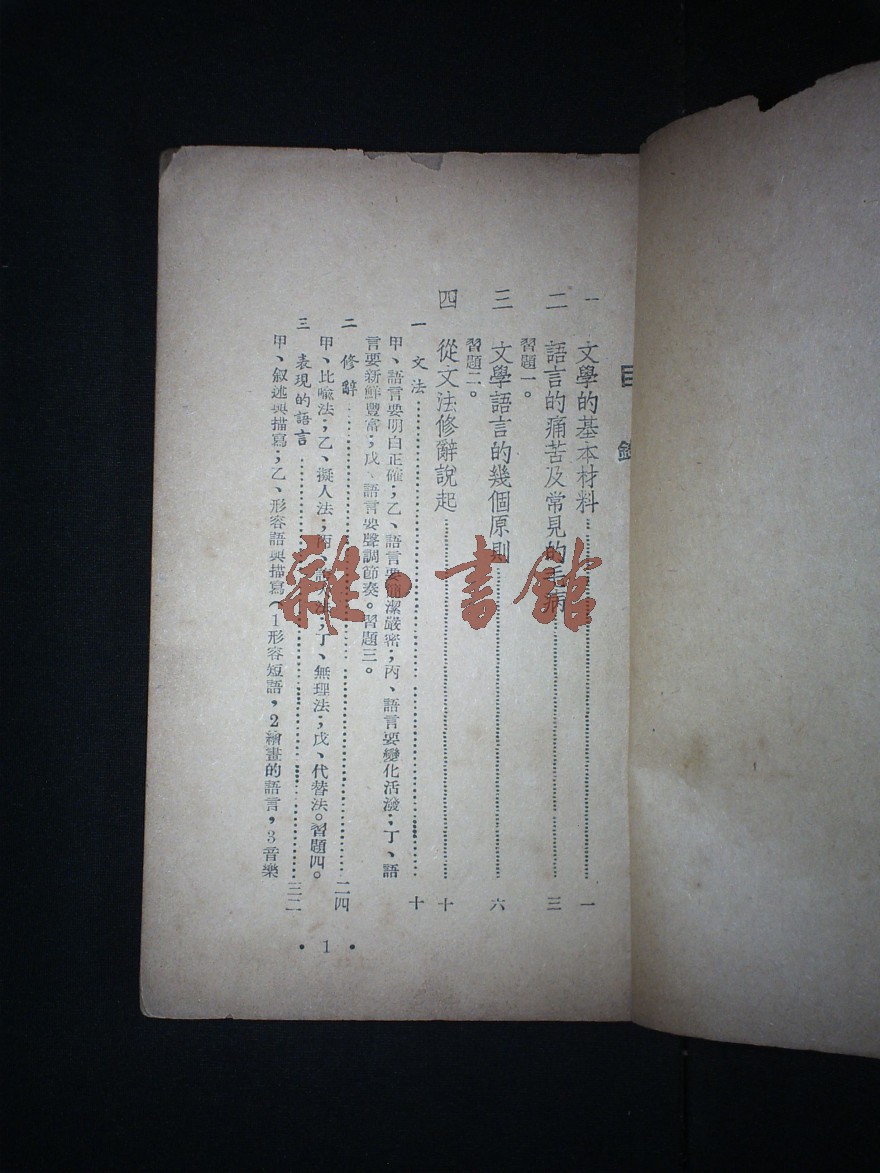 目錄
一 文學的基本材料 一
二 語言的痛苦及常見的毛病 三
習題一。
三 文學語言的幾個原則 六
習題二。
四 從文法修辭說起 十
一 文法 十
甲、語言要明白正確;乙、語言要簡潔嚴密;丙、語言要變化活潑;丁、語
言要新鮮豐富;戊、語言要聲調節奏。習題三。
二 修辭 二四
甲、比喩法;乙、擬人法;丙、法;丁、無理法;戊、代替法。習題四。
三 表現的語言 三二
甲、叙述與描寫;乙、形容語與描寫(1形容短語,2繪畫的語言,3音樂
• 1 •
雜·書館